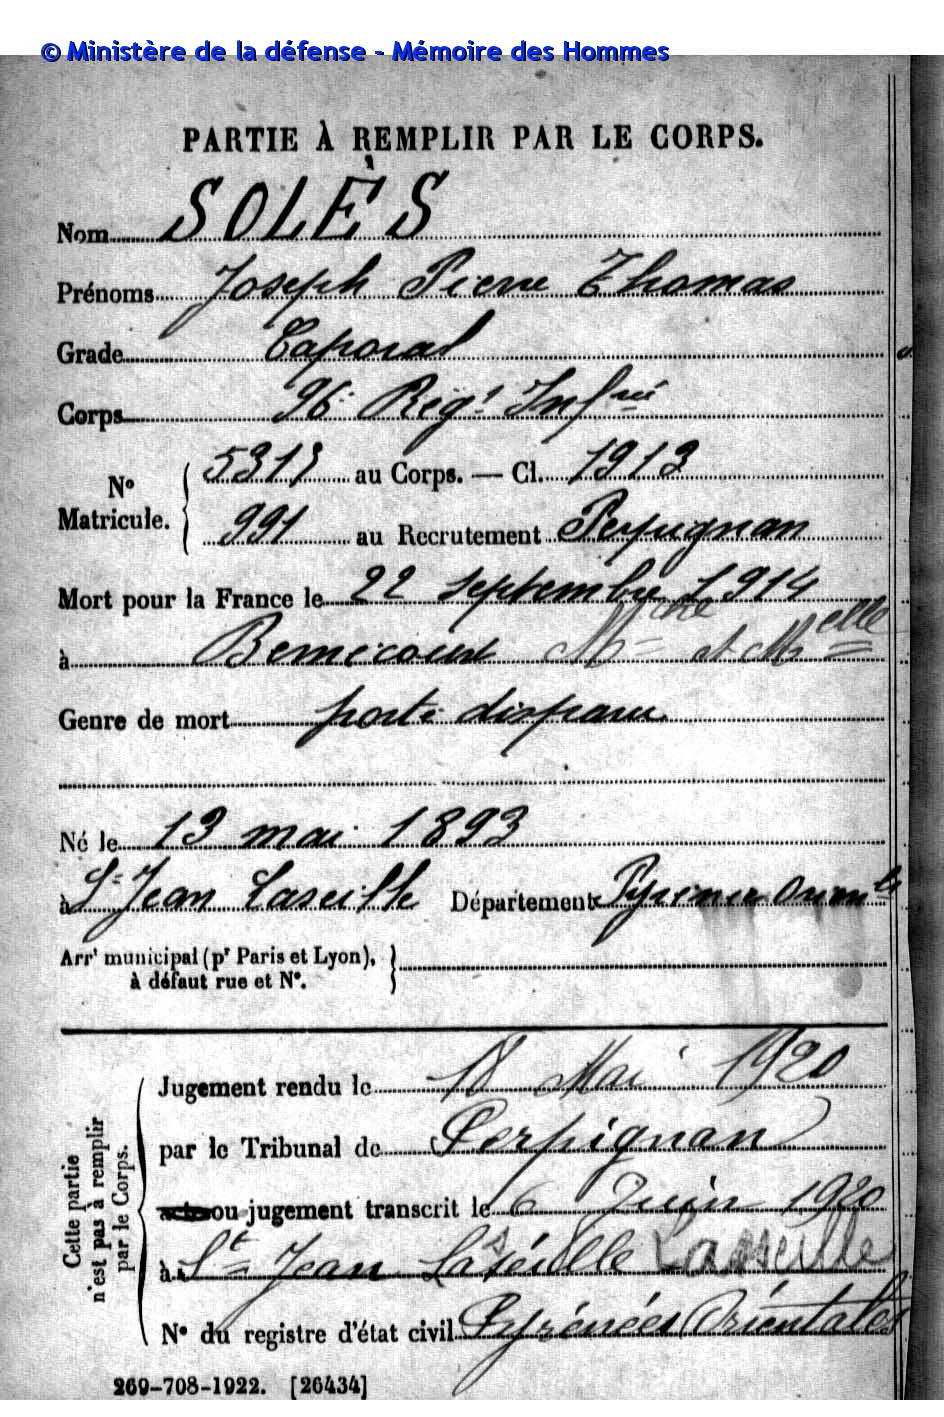 © Ministère de la défense - Mémoire des Hommes
PARTIE À REMPLIR PAR LE CORPS.
Nom SOLÈS
Prénoms Joseph Pierre Thomas
Grade Caporal
Corps 96e Régt Infrie
N° Matricule.
5317 au Corps. — Cl. 1913
991 au Recrutement Perpignan
Mort pour la France le 22 septembre 1914
à Bernécourt Mthe et Mselle
Genre de mort porté disparu
Né le 13 mai 1893
à St Jean Laseille Département Pyrénées Orientles
Arrt municipal (pr Paris et Lyon),
à défaut rue et N°.
Cette partie
n'est pas à remplir
par le Corps.
Jugement rendu le 18 Mai 1920
par le Tribunal de Perpignan
acte ou jugement transcrit le 6 Juin 1920
à St Jean Lasseille Lasseille
N° du registre d'état civil Pyrénées Orientales
269-708-1922. [26434]